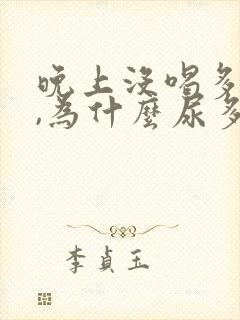 晚上沒喝多
,為什麼尿多
李貞玉